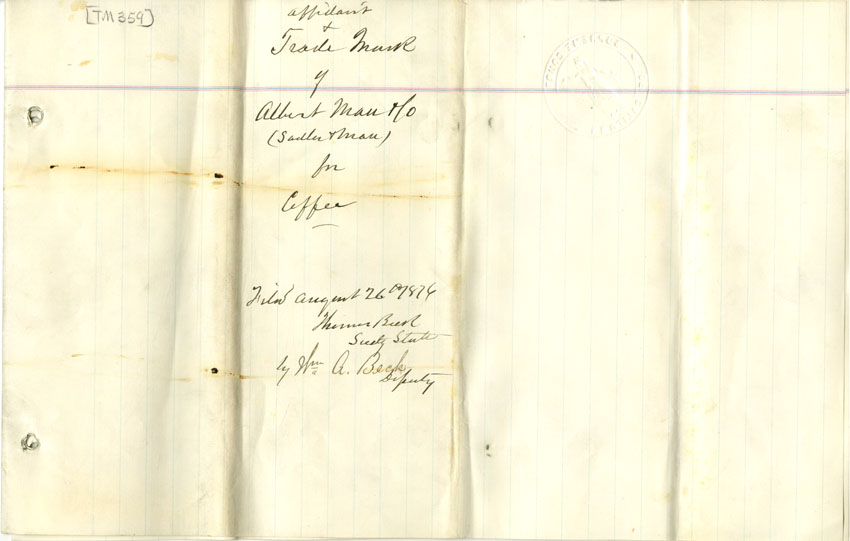 [TM 359]
affidavit
&
Trade Mark
of
Albert Mau & Co
(Sadler & Mau)
for
Coffee
Filed August 26th 1876
Thomas Beck
Secty State
by Wm A. Beck
Deputy